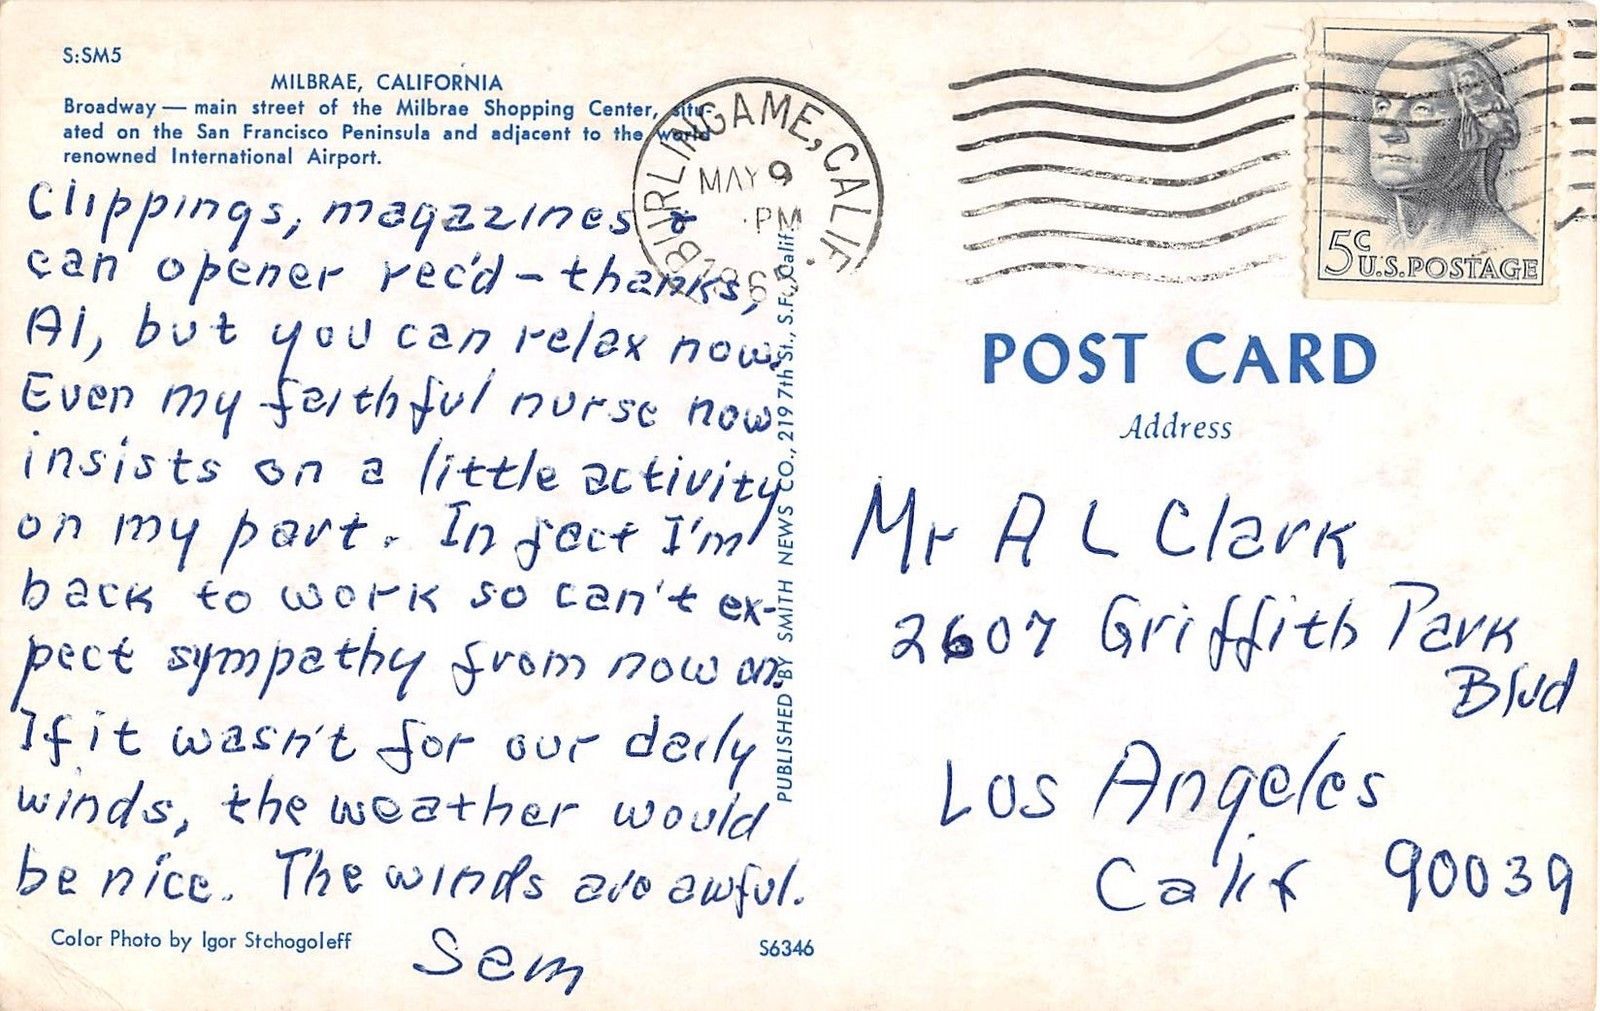 S:SM5
MILBRAE, CALIFORNIA
Broadway — main street of the Milbrae Shopping Center, situ-
ated on the San Francisco Peninsula and adjacent to the world
renowned International Airport.
Clippings, magazines &
can opener rec'd – thanks,
Al, but you can relax now.
Even my faithful nurse now
insists on a little activity
on my part. In fact I'm
back to work so can't ex-
pect sympathy from now on.
If it wasn't for our daily
winds, the weather would
be nice. The winds are awful.
Sam
Color Photo by Igor Stchogoleff
S6346
PUBLISHED BY SMITH NEWS CO., 219 7th St., S.F., Calif.
BURLINGAME, CALIF.
MAY 9
PM
5c
U.S. POSTAGE
POST CARD
Address
Mr A L Clark
2607 Griffith Park
Blvd
Los Angeles
Calif 90039